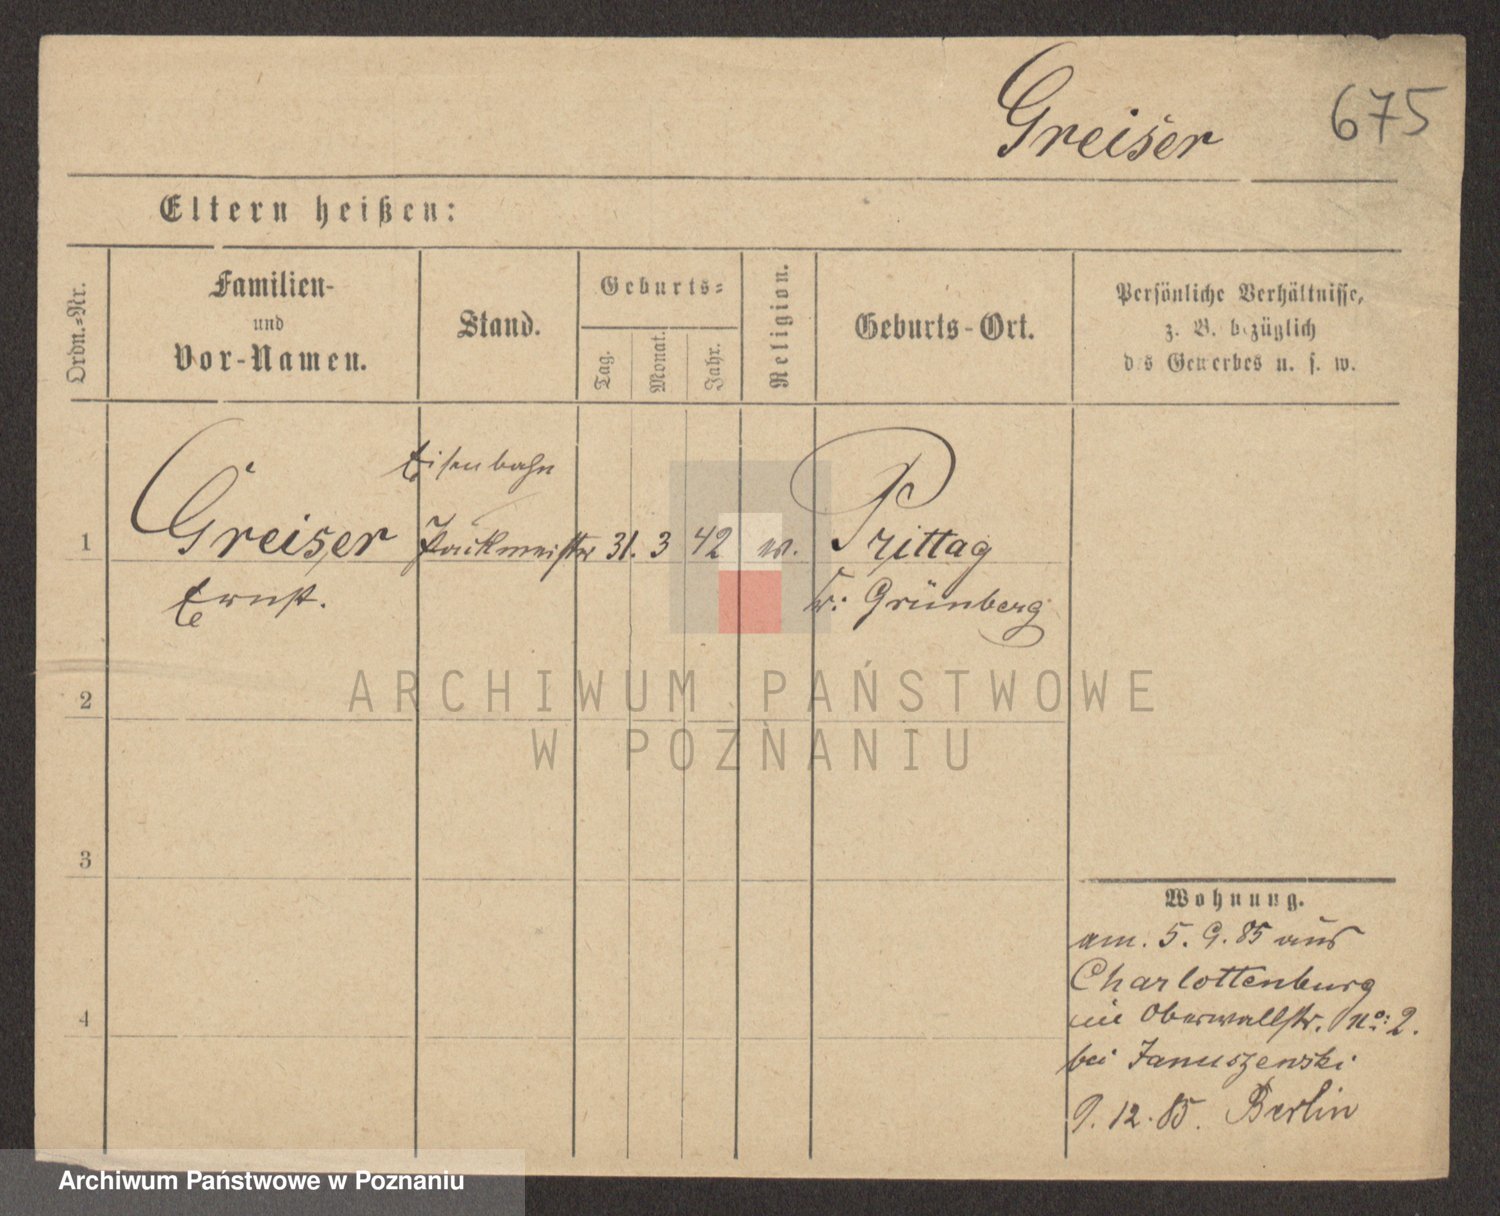 Greiser
675
Eltern heißen:
Ordn.=Nr.
Familien-
und
Vor-Namen.
Stand.
Geburts=
Tag.
Monat.
Jahr.
Religion.
Geburts-Ort.
Persönliche Verhältnisse,
z. B. bezüglich
des Gewerbes u. s. w.
Eisenbahn
1 Greiser Packmeister 31. 3 42 Prittag
Ernst. Kr: Grünberg
2
ARCHIWUM PAŃSTWOWE
W POZNANIU
3
4
Wohnung.
am. 5. 9. 85 aus
Charlottenburg
Oberwallstr. No: 2.
bei Januszewski
9. 12. 85. Berlin
Archiwum Państwowe w Poznaniu